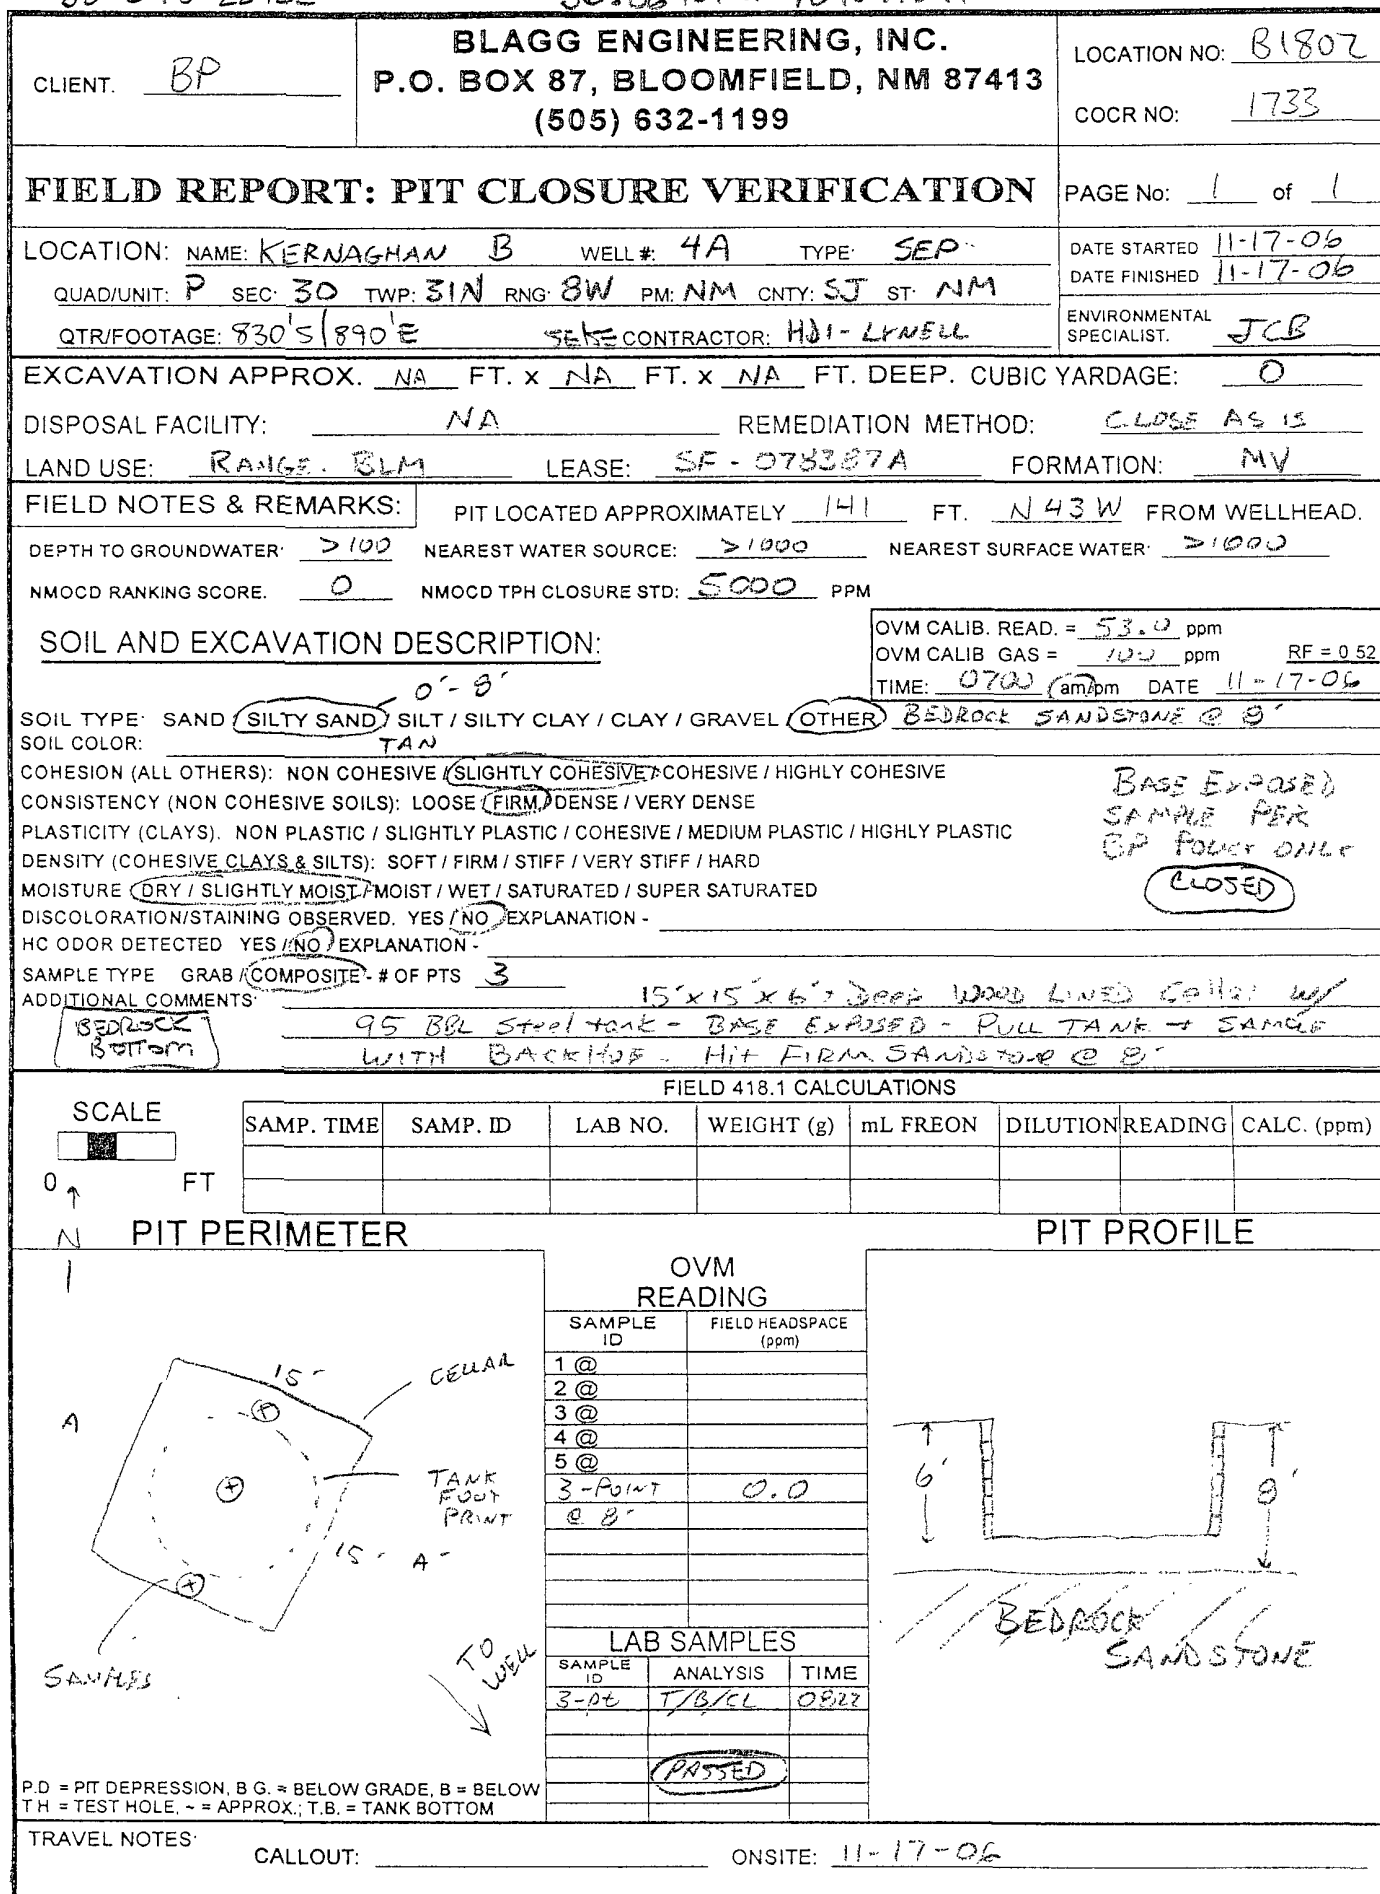 BLAGG ENGINEERING, INC.
P.O. BOX 87, BLOOMFIELD, NM 87413
(505) 632-1199
CLIENT. BP
LOCATION NO: B1802
COCR NO: 1733
FIELD REPORT: PIT CLOSURE VERIFICATION
PAGE No: 1 of 1
LOCATION: NAME: KERNAGHAN B WELL #: 4A TYPE: SEP
QUAD/UNIT: P SEC: 30 TWP: 31N RNG: 8W PM: NM CNTY: SJ ST: NM
QTR/FOOTAGE: 830'S/890'E SE/SE CONTRACTOR: HDI - LYNELL
DATE STARTED 11-17-06
DATE FINISHED 11-17-06
ENVIRONMENTAL SPECIALIST. JCB
EXCAVATION APPROX. NA FT. x NA FT. x NA FT. DEEP. CUBIC YARDAGE: 0
DISPOSAL FACILITY: NA REMEDIATION METHOD: CLOSE AS IS
LAND USE: RANGE. BLM LEASE: SF - 078387A FORMATION: MV
FIELD NOTES & REMARKS: PIT LOCATED APPROXIMATELY 141 FT. N43W FROM WELLHEAD.
DEPTH TO GROUNDWATER: >100 NEAREST WATER SOURCE: >1000 NEAREST SURFACE WATER: >1000
NMOCD RANKING SCORE. 0 NMOCD TPH CLOSURE STD: 5000 PPM
SOIL AND EXCAVATION DESCRIPTION:
OVM CALIB. READ. = 53.0 ppm
OVM CALIB GAS = 100 ppm RF = 0 52
TIME: 0700 am/pm DATE 11-17-06
0'-8'
SOIL TYPE: SAND / SILTY SAND / SILT / SILTY CLAY / CLAY / GRAVEL / OTHER BEDROCK SANDSTONE @ 8'
SOIL COLOR: TAN
COHESION (ALL OTHERS): NON COHESIVE / SLIGHTLY COHESIVE / COHESIVE / HIGHLY COHESIVE
CONSISTENCY (NON COHESIVE SOILS): LOOSE / FIRM / DENSE / VERY DENSE
PLASTICITY (CLAYS). NON PLASTIC / SLIGHTLY PLASTIC / COHESIVE / MEDIUM PLASTIC / HIGHLY PLASTIC
DENSITY (COHESIVE CLAYS & SILTS): SOFT / FIRM / STIFF / VERY STIFF / HARD
MOISTURE DRY / SLIGHTLY MOIST / MOIST / WET / SATURATED / SUPER SATURATED
DISCOLORATION/STAINING OBSERVED. YES / NO EXPLANATION -
HC ODOR DETECTED YES / NO EXPLANATION -
SAMPLE TYPE GRAB / COMPOSITE - # OF PTS 3
BASE EXPOSED
SAMPLE PER
BP POLICY ONLY
CLOSED
ADDITIONAL COMMENTS: 15'x15'x6' Deep WOOD LINED Cellar w/
95 BBL Steel tank - BASE EXPOSED - PULL TANK + SAMPLE
WITH BACKHOE - Hit FIRM SANDSTONE @ 8'
BEDROCK
BOTTOM
FIELD 418.1 CALCULATIONS
SCALE
0 FT
SAMP. TIME SAMP. ID LAB NO. WEIGHT (g) mL FREON DILUTION READING CALC. (ppm)
N
PIT PERIMETER
PIT PROFILE
OVM
READING
SAMPLE ID FIELD HEADSPACE (ppm)
1 @
2 @
3 @
4 @
5 @
3-POINT 0.0
@ 8'
15'
CELLAR
A
TANK
FOOT
PRINT
15'
A'
SAMPLES
TO
WELL
6'
8'
BEDROCK
SANDSTONE
LAB SAMPLES
SAMPLE ID ANALYSIS TIME
3-pt T/B/CL 0822
PASSED
P.D = PIT DEPRESSION, B G. = BELOW GRADE, B = BELOW
T H = TEST HOLE, ~ = APPROX.; T.B. = TANK BOTTOM
TRAVEL NOTES:
CALLOUT:
ONSITE: 11-17-06